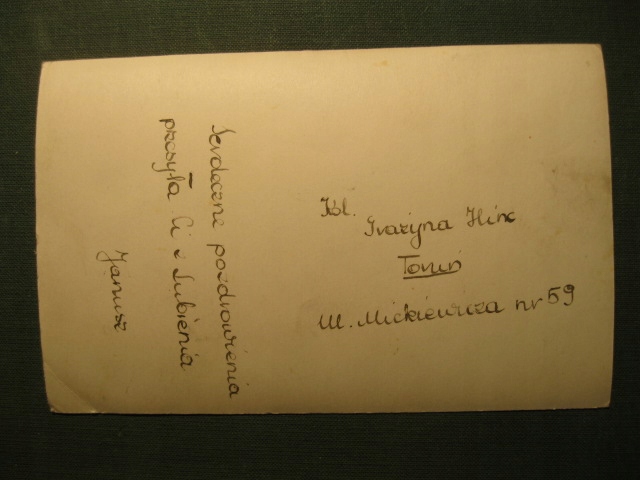 Serdeczne pozdrowienia
przesyła Ci z Lubienia
Janusz
Kol.
Grażyna Hinc
Toruń
Ul. Mickiewicza nr 59